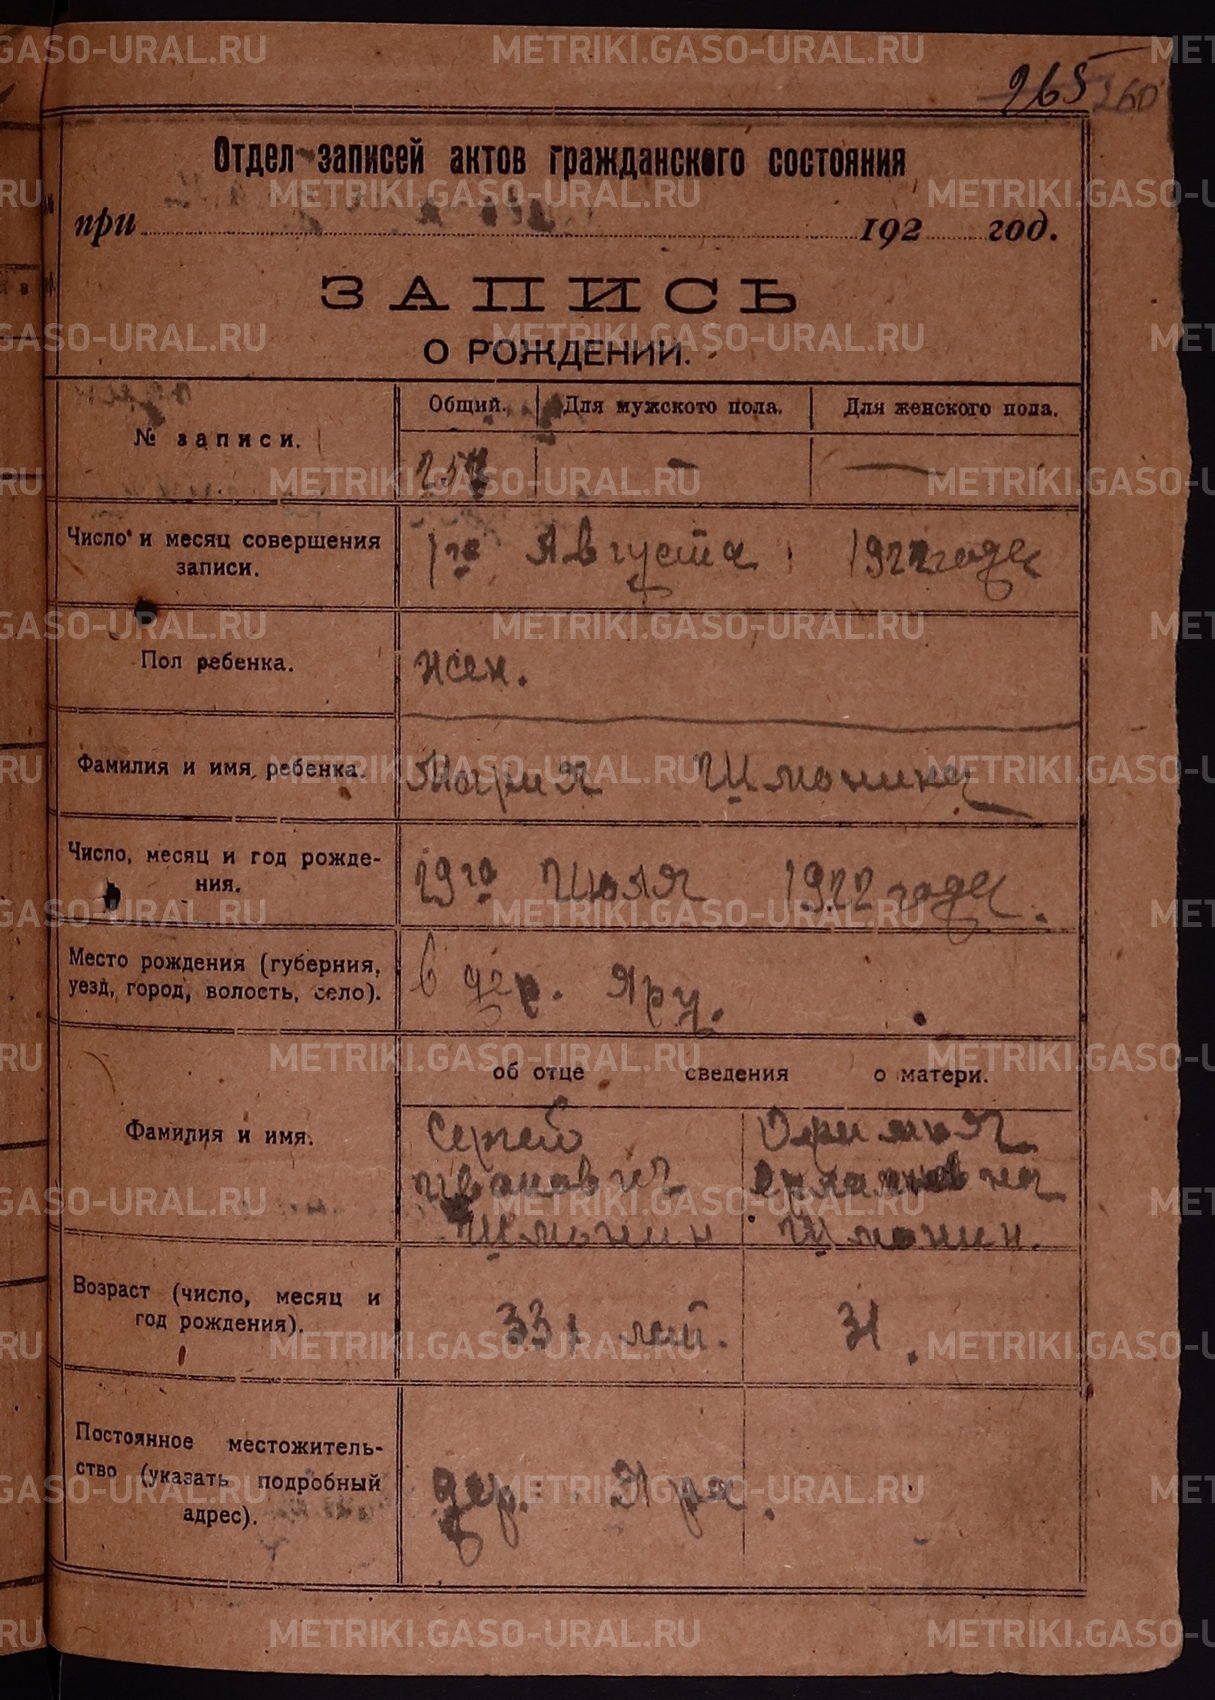 965 260
Отдел записей актов гражданского состояния
при 192 год.
ЗАПИСЬ
О РОЖДЕНИИ.
№ записи.
Общий. Для мужского пола. Для женского пола.
257 — —
Число и месяц совершения
записи.
1го Августа 1922 года
Пол ребенка.
жен.
Фамилия и имя ребенка.
Мария Шмонина
Число, месяц и год рожде-
ния.
29го Июля 1922 года.
Место рождения (губерния,
уезд, город, волость, село).
в дер. Яру.
об отце сведения о матери.
Фамилия и имя.
Сергей
Иванович
Шмонин
Шмонин.
Возраст (число, месяц и
год рождения).
33 лет. 31.
Постоянное местожитель-
ство (указать подробный
адрес).
дер. Яра.
METRIKI.GASO-URAL.RU